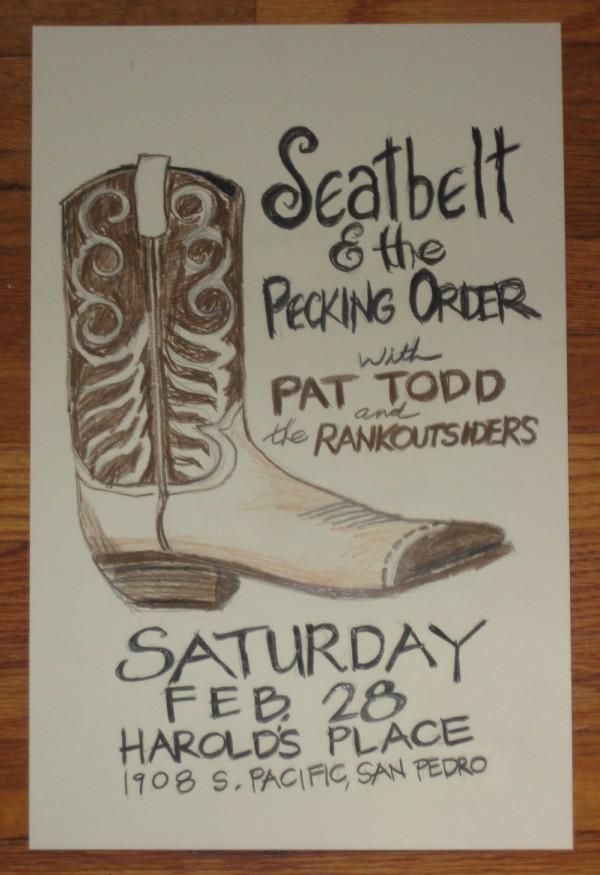 Seatbelt
& the
PECKING ORDER
with
PAT TODD
and
the RANKOUTSIDERS
SATURDAY
FEB. 28
HAROLD'S PLACE
1908 S. PACIFIC, SAN PEDRO